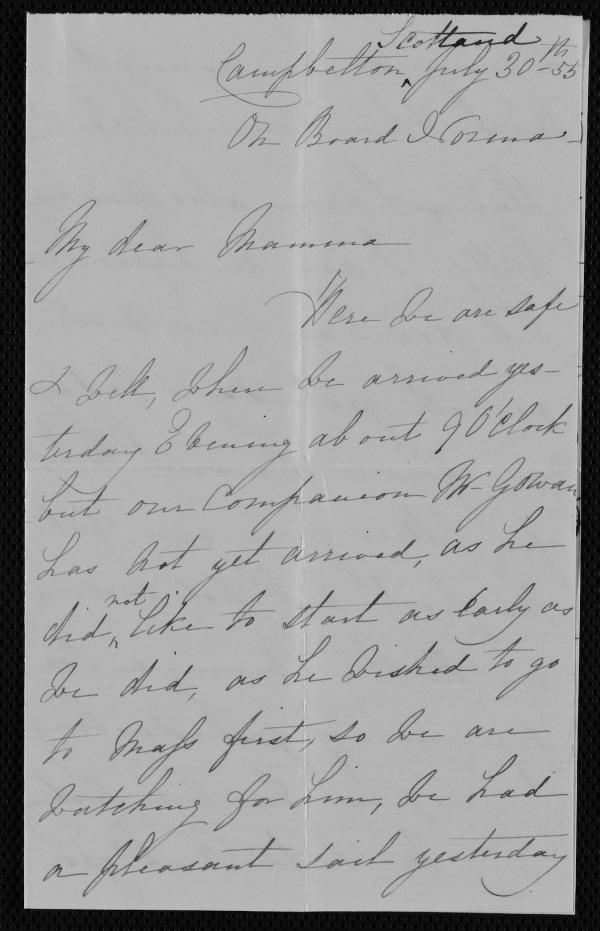 Scotland
Campbelton, July 30th 55
On Board Norma
My dear Mamma
Here we are safe
& well, where we arrived yes-
terday Evening about 9 O'Clock
but our Companion Mr Gowan
has not yet arrived, as he
did not like to start as Early as
we did, as he wished to go
to Mass first, so we are
watching for him, we had
a pleasant sail yesterday